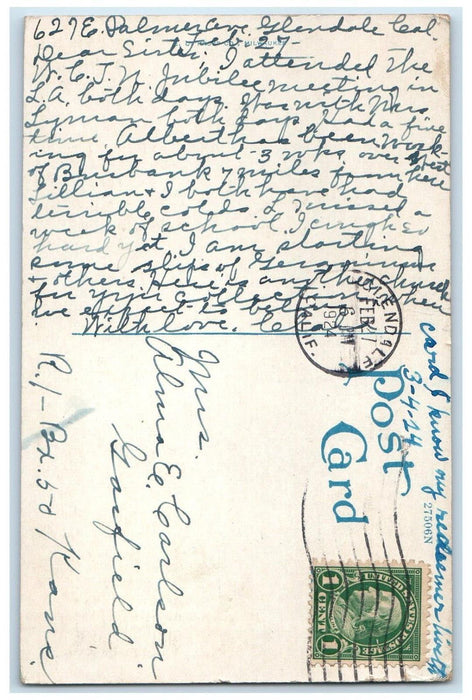 627 E. Palmer Ave. Glendale Cal.
Feb. 27-
Dear Sister, I attended the
W.C.T.U. Jubilee meeting in
L.A. both days. Was with Mrs
Lyman both days. Had a fine
time. Albert has been work-
ing for about 3 wks. over West
of Burbank 7 miles from here
Lillian & I both have had
terrible colds. L. missed a
week of school. I cough so
hard yet. I am starting
some slips of Geraniums
& others. Here is another church
for your collection. where
we expect to
With love.
GLENDALE
CALIF.
FEB 27
6 PM
1924
Post
Card
27506N
card I know my redeemer liveth
3-4-24
UNITED STATES POSTAGE
1 CENT 1
Mrs.
Alma E. Carlson
Garfield
R. 1 - Bx. 50 Kans.